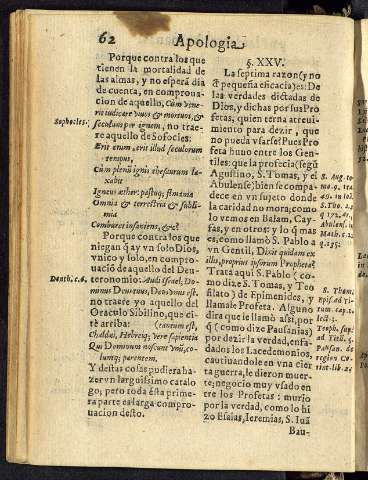 62
Apologia
Porque contra los que
tienen la mortalidad de
las almas, y no espera dia
de cuenta, en comproua-
cion de aquello, Cùm vene-
ris iudicare viuos & mortuos, &
Sophocles.
seculum per ignem, no trae-
re aquello de Sofocles:
Erit enim, erit illud seculorum
tempus,
Cùm plenũ ignis thesaurum la-
xabit
Igneus æther: pastuq; flamma
Omnia & terrestria & subli-
mia
Comburet insaniens, &c?
Porque contra los que
niegan q̃ ay vn solo Dios,
vnico y solo, en compro-
uaciõ de aquello del Deu-
Deuth. c. 6.
teronomio: Audi israel, Do-
minus Deus tuus, Deus vnus est.
no traeré yo aquello del
Oraculo Sibilino, que ci-
té arriba:
(tantum est,
Chaldæi, Hebreiq; vere sapientia
Qui Dominum noscunt vnũ, co-
lumq; parentem.
Y destas cosas pudiera ha-
zer vn larguissimo catalo
go; pero toda ésta prime-
ra parte es larga compro-
uacion desto.
§. XXV.
La septima razon (y no
de pequeña eficacia) es: De
las verdades dictadas de
Dios, y dichas por sus Pro
fetas, quien terna atreui-
miento para dezir, que
no pueda vsarse? Pues Pro
feta huuo entre los Gen-
tiles: que la profecia (segũ
Agustino, S. Tomas, y el
Abulense) bien se compa-
dece en vn sujeto donde
la caridad no mora; como
lo vemos en Balam, Cay-
fas, y en otros: y lo q̃ mas
es, como llamò S. Pablo a
vn Gentil, Dixit quidam ex
illis, proprius ipsorum Propheta?
Trata aqui S. Pablo (co-
mo dize S. Tomas, y Teo
filato) de Epimenides, y
llamale Profeta. Alguno
dira que le llamò assi, por
q̃ (como dize Pausanias)
por dezir la verdad, enfa-
dados los Lacedemonios,
cautiuandole en vna cier
ta guerra, le dieron muer-
te; negocio muy vsado en
tre los Profetas: murio
por la verdad, como lo hi
zo Esaias, Ieremias, S. Iuã
Bau-
S. Aug. to-
Abulens. in
Math. c.
q. 135.
S. Thom.
Epis. ad Ti-
tum. cap. 1.
lect. 3.
Teoph. sup.
ad Titũ. 1.
Pausan. de
region Co-
rint. lib. 2.